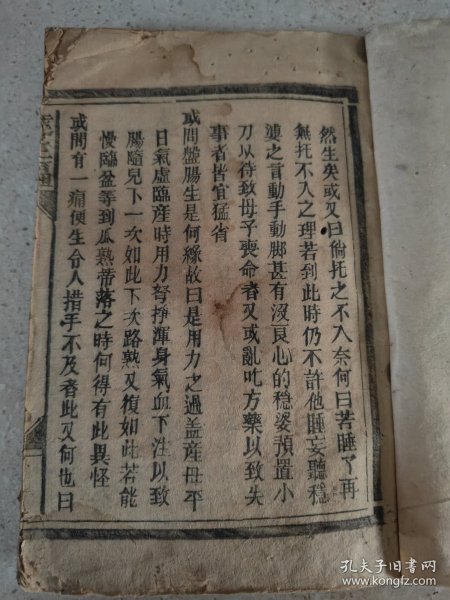 然生矣或又曰倘托之不入奈何曰若睡了再
無托不入之理若到此時仍不許他睡妄聽穩
婆之言動手動脚甚有沒良心的穏婆預置小
刀以待致母子喪命者又或亂吃方藥以致失
事者皆宜猛省
或問盤腸生是何緣故曰是用力之過盖産母平
日氣虛臨産時用力努掙渾身氣血下注以致
腸隨兒下一次如此下次路熟又復如此若能
慢臨盆等到瓜熟蒂落之時何得有此異怪
或問有一痛便生令人措手不及者此又何也曰
孔夫子旧书网
www.kongfz.com